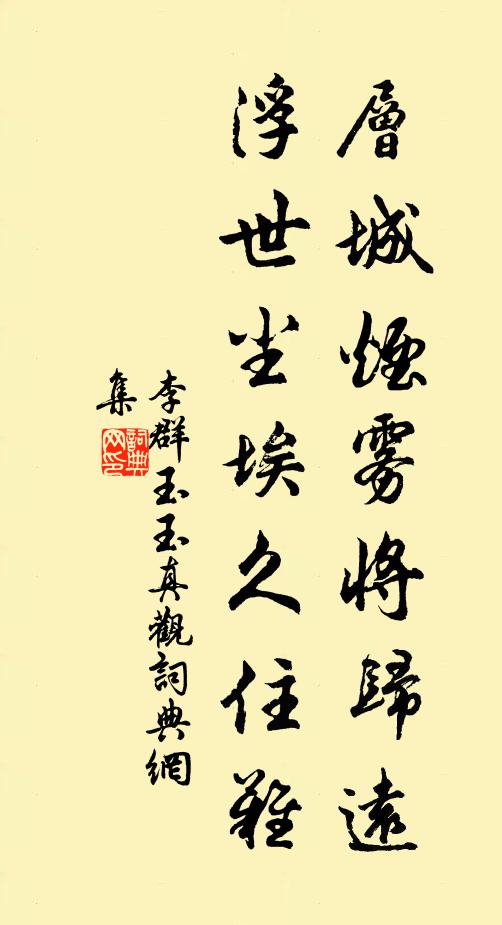 層城煙雾将歸遠
浮世尘埃久住難
李群玉玉真觀詞典網
集
詞典
网印